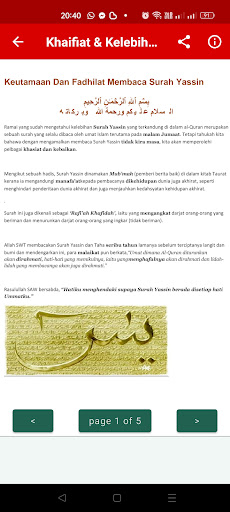 20:40
91
Khaifiat & Kelebih...
Keutamaan Dan Fadhilat Membaca Surah Yassin
بِسْمِ اللهِ الرَّحْمٰنِ الرَّحِيْمِ
السلام عليكم ورحمة الله وبركاته
Ramai yang sudah mengetahui kelebihan Surah Yassin yang terkandung di dalam al-Quran merupakan
sebuah surah yang selalu dibaca oleh umat Islam terutama pada malam Jumaat. Tetapi tahukah kita
bahawa dengan mengamalkan membaca Surah Yassin tidak kira masa, kita akan memperolehi
pelbagai khasiat dan kebaikan.
Mengikut sebuah hadis, Surah Yassin dinamakan Mub'mah (pemberi berita baik) di dalam kitab Taurat
kerana ia mengandungi manafa'at kepada pembacanya dikehidupan dunia juga akhirat, seperti
menghindari penderitaan dunia akhirat dan juga menjauhkan kedahsyatan kehidupan akhirat.
.
Surah ini juga dikenali sebagai 'Rafi'ah Khafidah', iaitu yang mengangkat darjat orang-orang yang
beriman dan menurunkan darjat orang-orang yang ingkar (tidak beriman).
Allah SWT membacakan Surah Yassin dan Taha seribu tahun lamanya sebelum terciptanya langit dan
bumi dan mendengarkan ini, para malaikat pun berkata,"Umat dimana Al-Quran diturunkan
akan dirahmati, hati-hati yang memikulnya, iaitu yang menghafalnya akan dirahmati dan lidah-
lidah yang membacanya akan juga dirahmati."
Rasulullah SAW bersabda, "Hatiku menghendaki supaya Surah Yassin berada disetiap hati
Ummatku."
يس
<
page 1 of 5
>